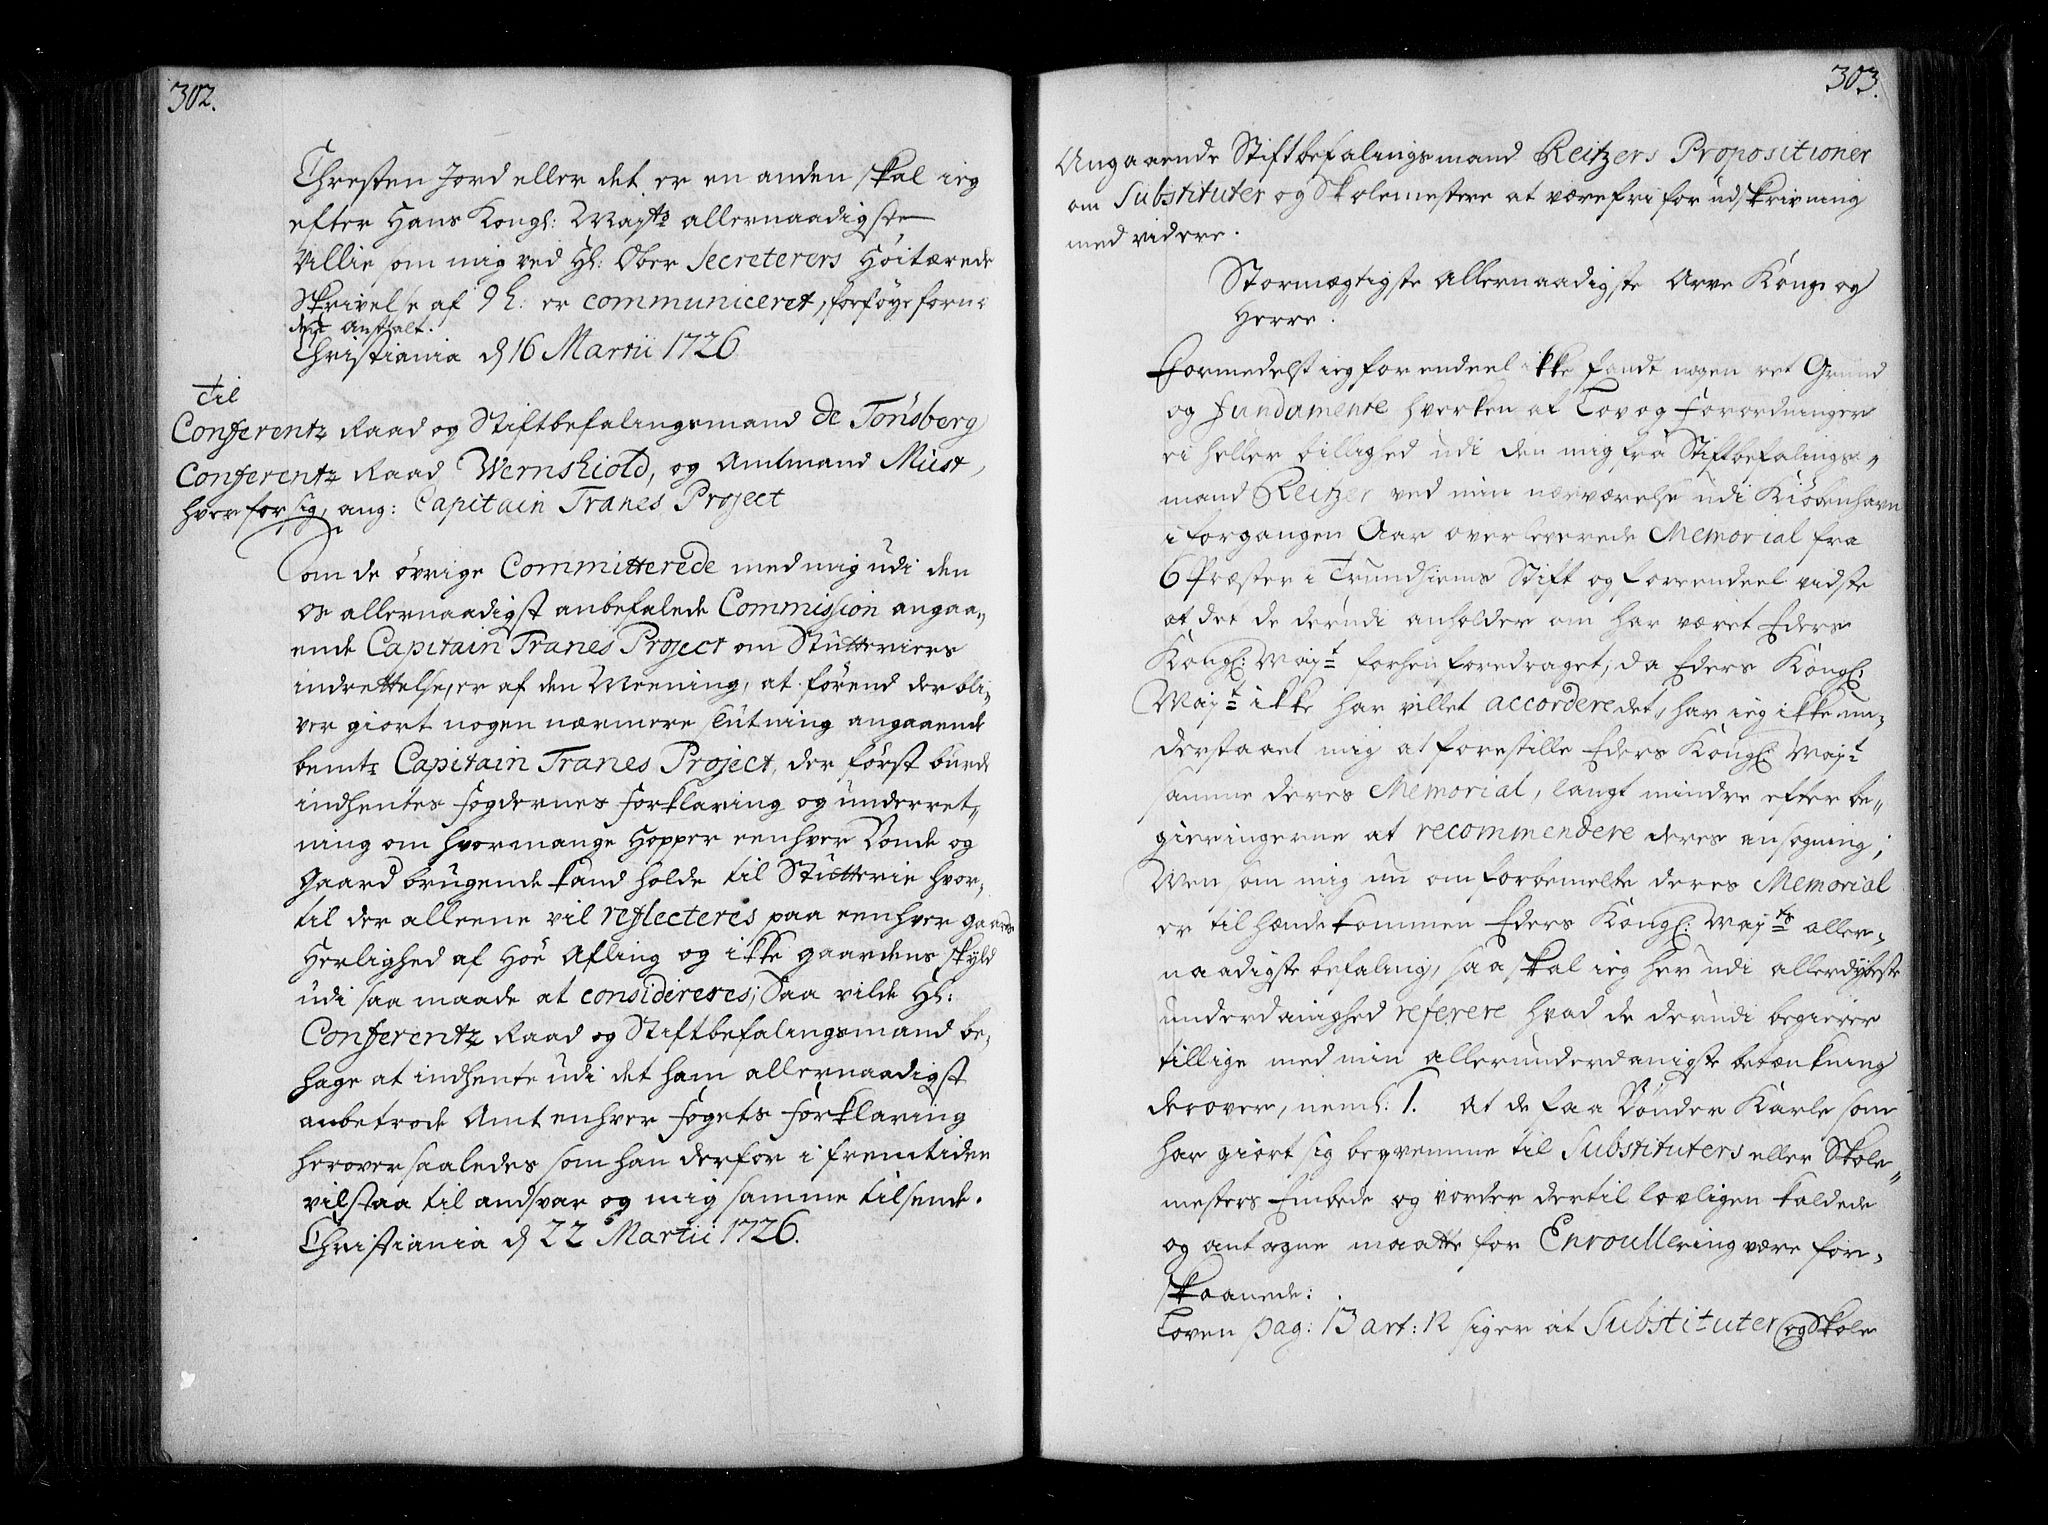 302.
Christen Jord eller det er en anden skal ieg
efter Hans Kongl: Maÿts allernaadigste
Villie som mig ved Hl: Ober Secreterers Höitærede
Skrivelse af 9 h: er communiceret, forføÿe forn:
den Anstalt.
Christiania d 16 Martii 1726
Til
Conferentz Raad og Stiftbefalingsmand de Tonsberg
Conferentz Raad Wernskiold, og Amtmand Must,
hver for sig, ang: Capitain Tranes Project
Som de øvrige Committerede med mig udi den
os allernaadigst anbefalede Commission angaa-
ende Capitain Tranes Project om Stutteriers
indrettelse, er af den Meening, at førend der bli-
ver giort nogen nærmere slutning angaaende
bemte Capitain Tranes Project, der først burde
indhentes fogdernes forklaring og underret-
ning om hvormange Hopper eenhver Bonde og
Gaard brugende kand holde til Stutterie hvor-
til der alleene vil reflecteres paa eenhver gaards
Herlighed af Høe Afling og ikke gaardens skyld
udi saa maade at considereres; Saa vilde Hl:
Conferentz Raad og Stiftbefalingsmand be-
hage at indhente udi det ham allernaadigst
anbetrode Amt enhver fogets forklaring
herover saaledes som han derfor i fremtiden
vil staa til andsvar og mig samme tilsende.
Christiania d 22 Martii 1726.
303.
Angaaende Stiftbefalingsmand Reitzers Propositioner
om Substituter og Skolemestere at være fri for udskrivning
med videre.
Stormægtigste Allernaadigste Arve Konge og
Herre.
Formedelst ieg for endeel ikke fandt nogen ret Grund
og fundamente hverken af Lov og forordninger
ei heller billighed udi den mig fra Stiftbefalings-
mand Reitzer ved min nærværelse udi Kiøbenhavn
i forgangen Aar overleverede Memorial fra
6 Præster i Trundhiems Stift og for eendeel vidste
at det de derudi anholder om har været Eders
Kongl: Mayt forhen foredraget, da Eders Kongl:
Mayt ikke har villet accordere det, har ieg ikke un-
derstaaet mig at forestille Eders Kongl: Mayt
samme deres Memorial, langt mindre efter be-
gieringerne at recommendere deres ansøgning;
Men som mig nu om forbemelte deres Memorial
er tilhænde kommen Eders Kongl: Mayts aller-
naadigste befaling, saa skal ieg her udi allerdybeste
underdanighed referere hvad de derudi begierer
tillige med min allerunderdanigste betænkning
derover, neml: 1. At de faa Bønder Karle som
har giort sig beqvemme til Substituters eller Skole-
mesters Embede og vorder dertil lovligen kaldede
og antagne maatte for Enroullering være for-
skaanede:
Loven pag: 13 art: 12 siger at Substituter og Skole